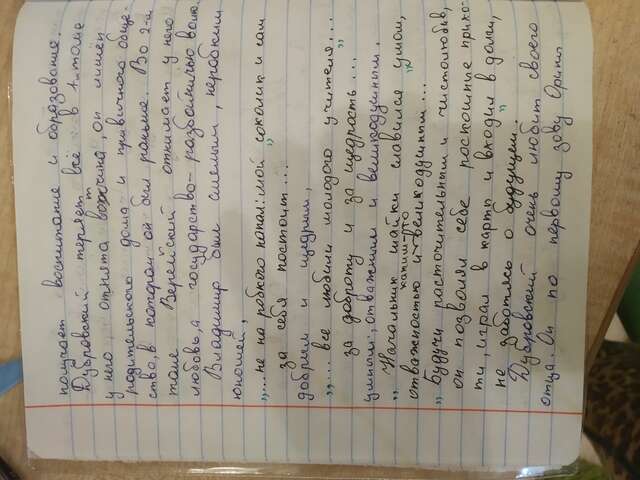 получает воспитание и образование.
Дубровский теряет всё в 1 томе
у него отнята вотчина, он лишён
родительского дома и привычного обще-
ства, в котором ой был раньше. Во 2-й
томе Верейский отнимает у него
любовь, а государство - разбойничью волю.
Владимир был смелым, неробким
юношей,
„... не на робкого напал: мой соколик и сам
за себя постоит..."
добрым и щедрым,
„... все любили молодого учителя...
за доброту и за щедрость..."
умным, отважным и великодушным.
„Начальник шайки славился умом,
отважностью и каким-то великодушным..."
„Будучи расточительным и честолюбив,
он позволял себе роскошные прихо-
ти, играл в карты и входил в долги,
не заботясь о будущем..."
Дубровский очень любит своего
отца. Он по первому зову Орины